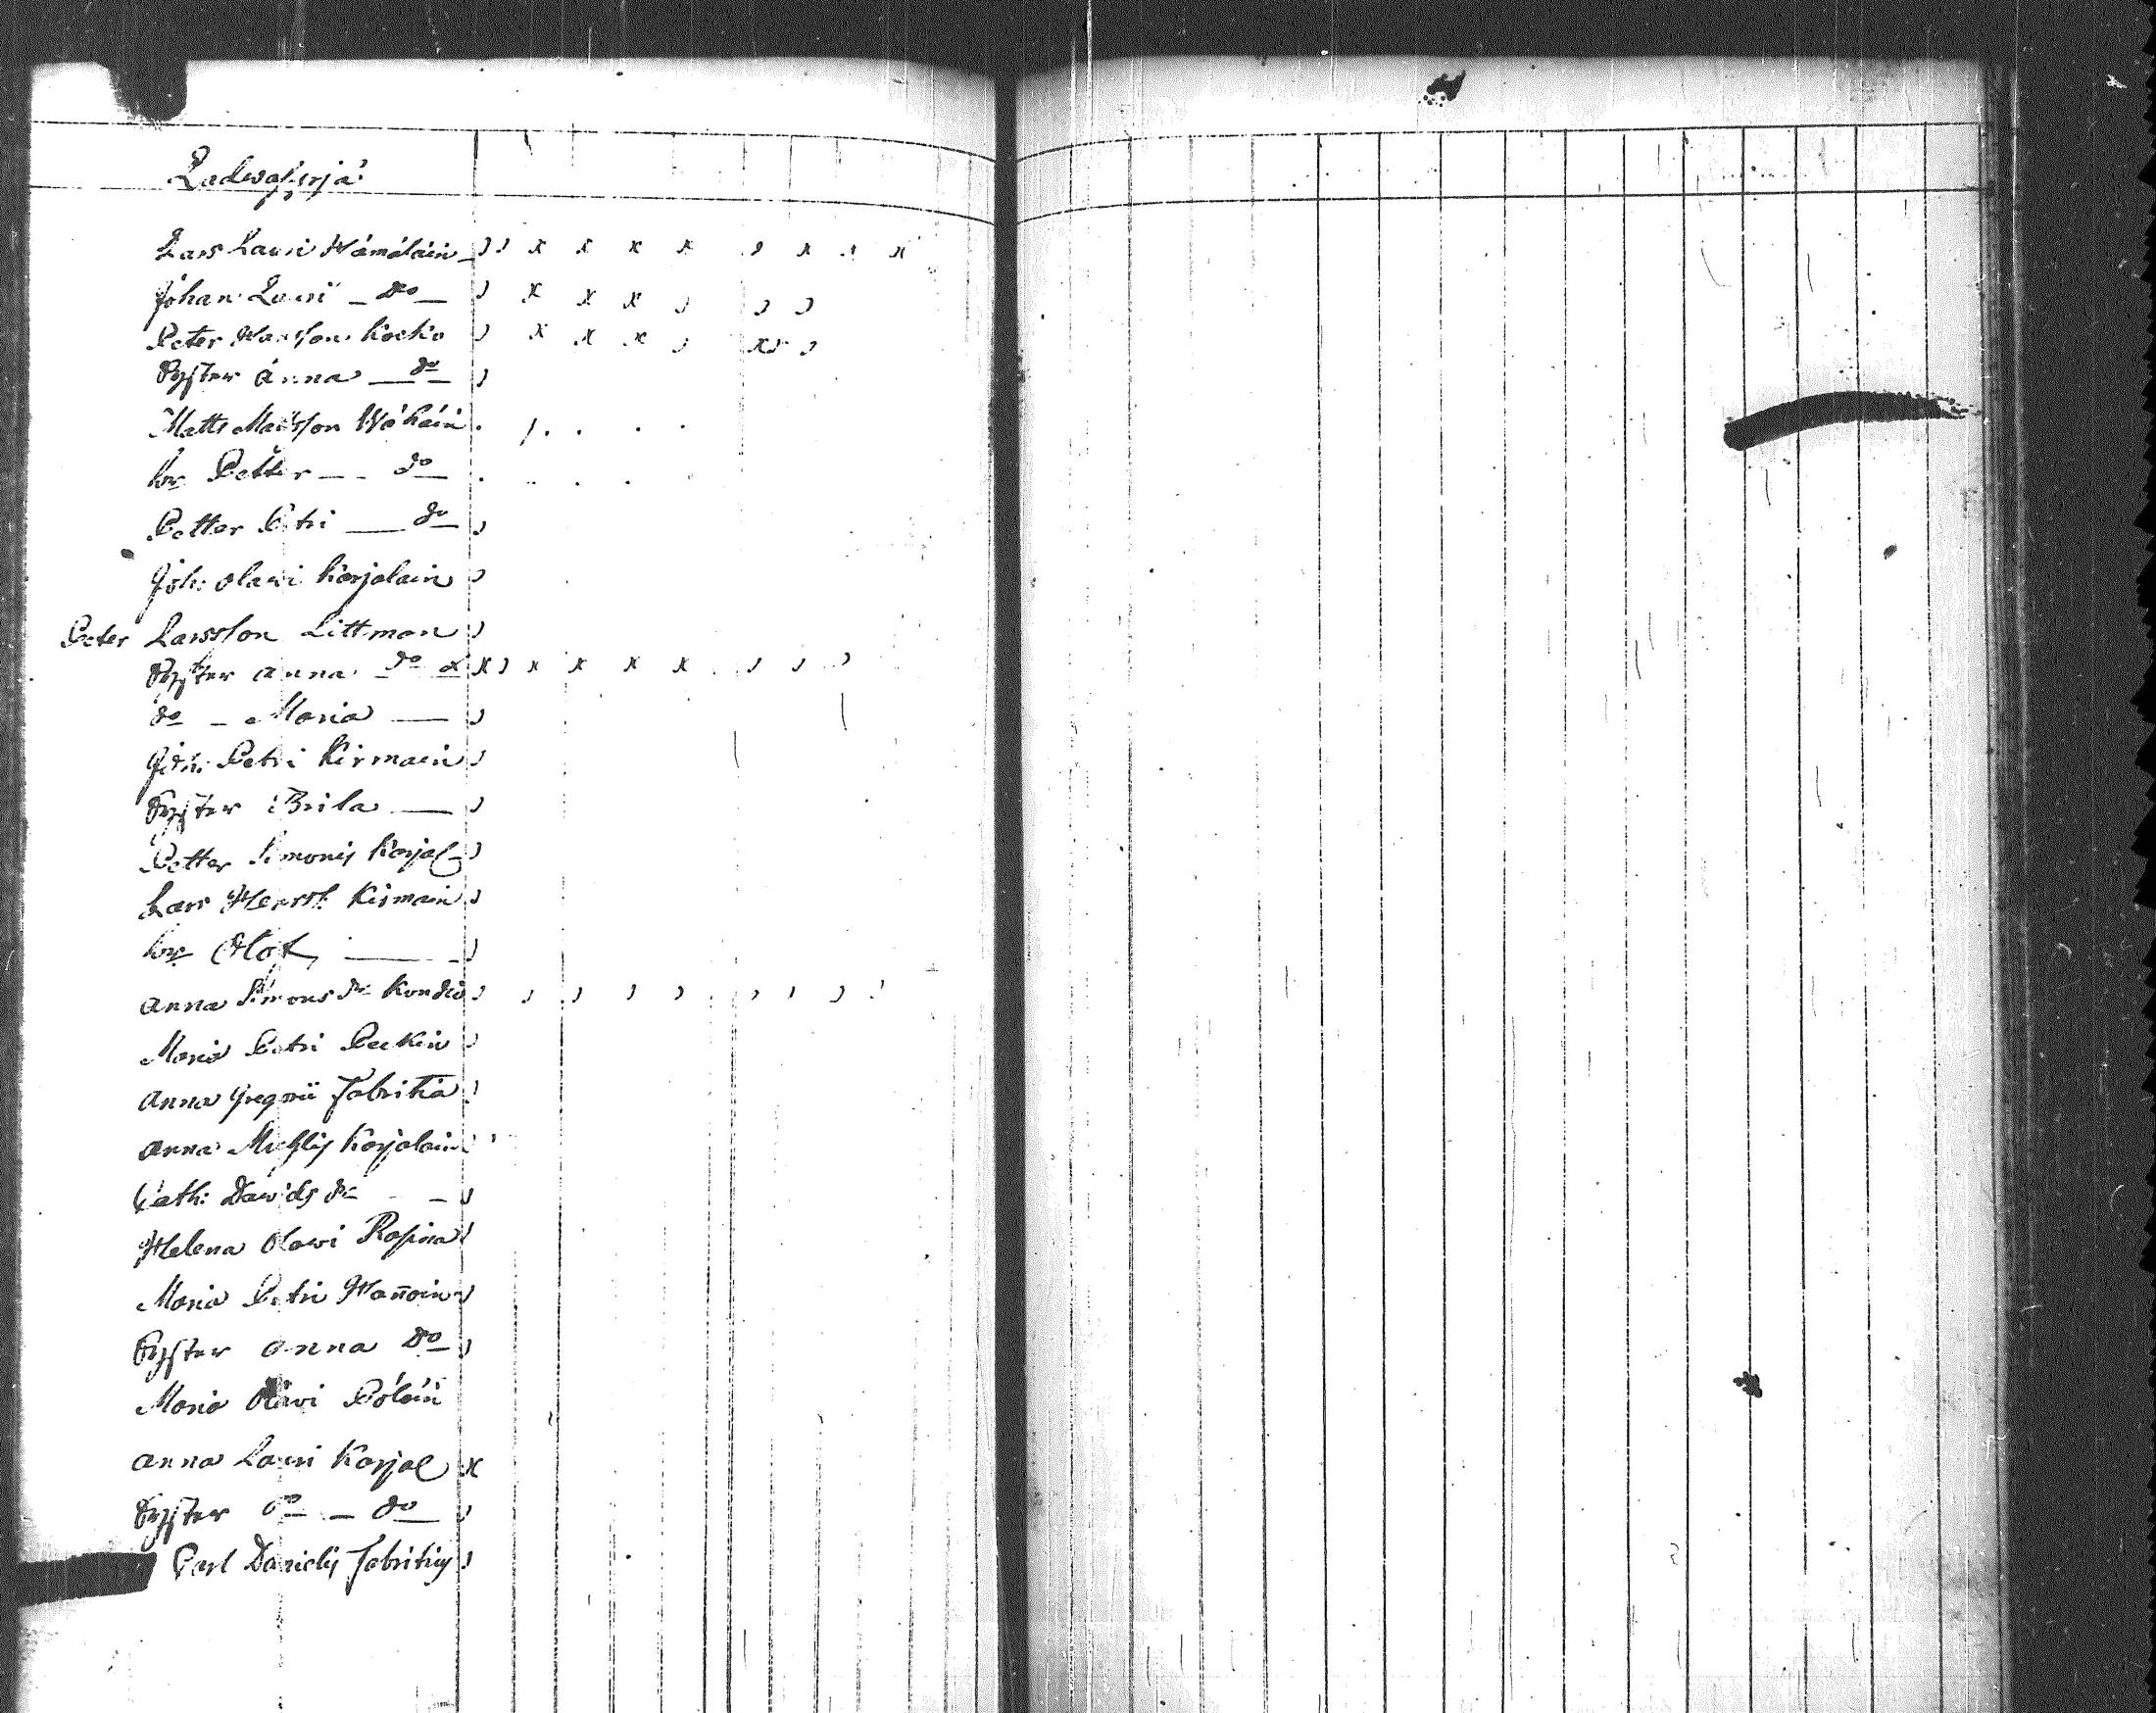 Ladwasyrjä
Lars Lauri Hämäläin
Johan Lauri — Do —
Peter Hansson Kockо
Syster Anna — do
Matts Matsson Wähäin
br Petter — do
Petter Petri — do
Joh: Olawi Karjalain
Peter Larsson Littman
Syster Anna do
do - Maria —
Joh: Petri Kirmain
Syster Brita —
Petter Simonis Karjal
Lars Henrss Kirmain
br Olof —
Anna Simons dr Kondia
Maria Petri Peckin
Anna Gregorii Fabritia
Anna Michlis Karjalain
Cath: Davids dr —
Helena Olawi Rapina
Maria Petri Hañoin
Syster Anna Do
Maria Olawi Pöläin
Anna Lauri Karjal
Syster do — do
Carl Danielis Fabritius